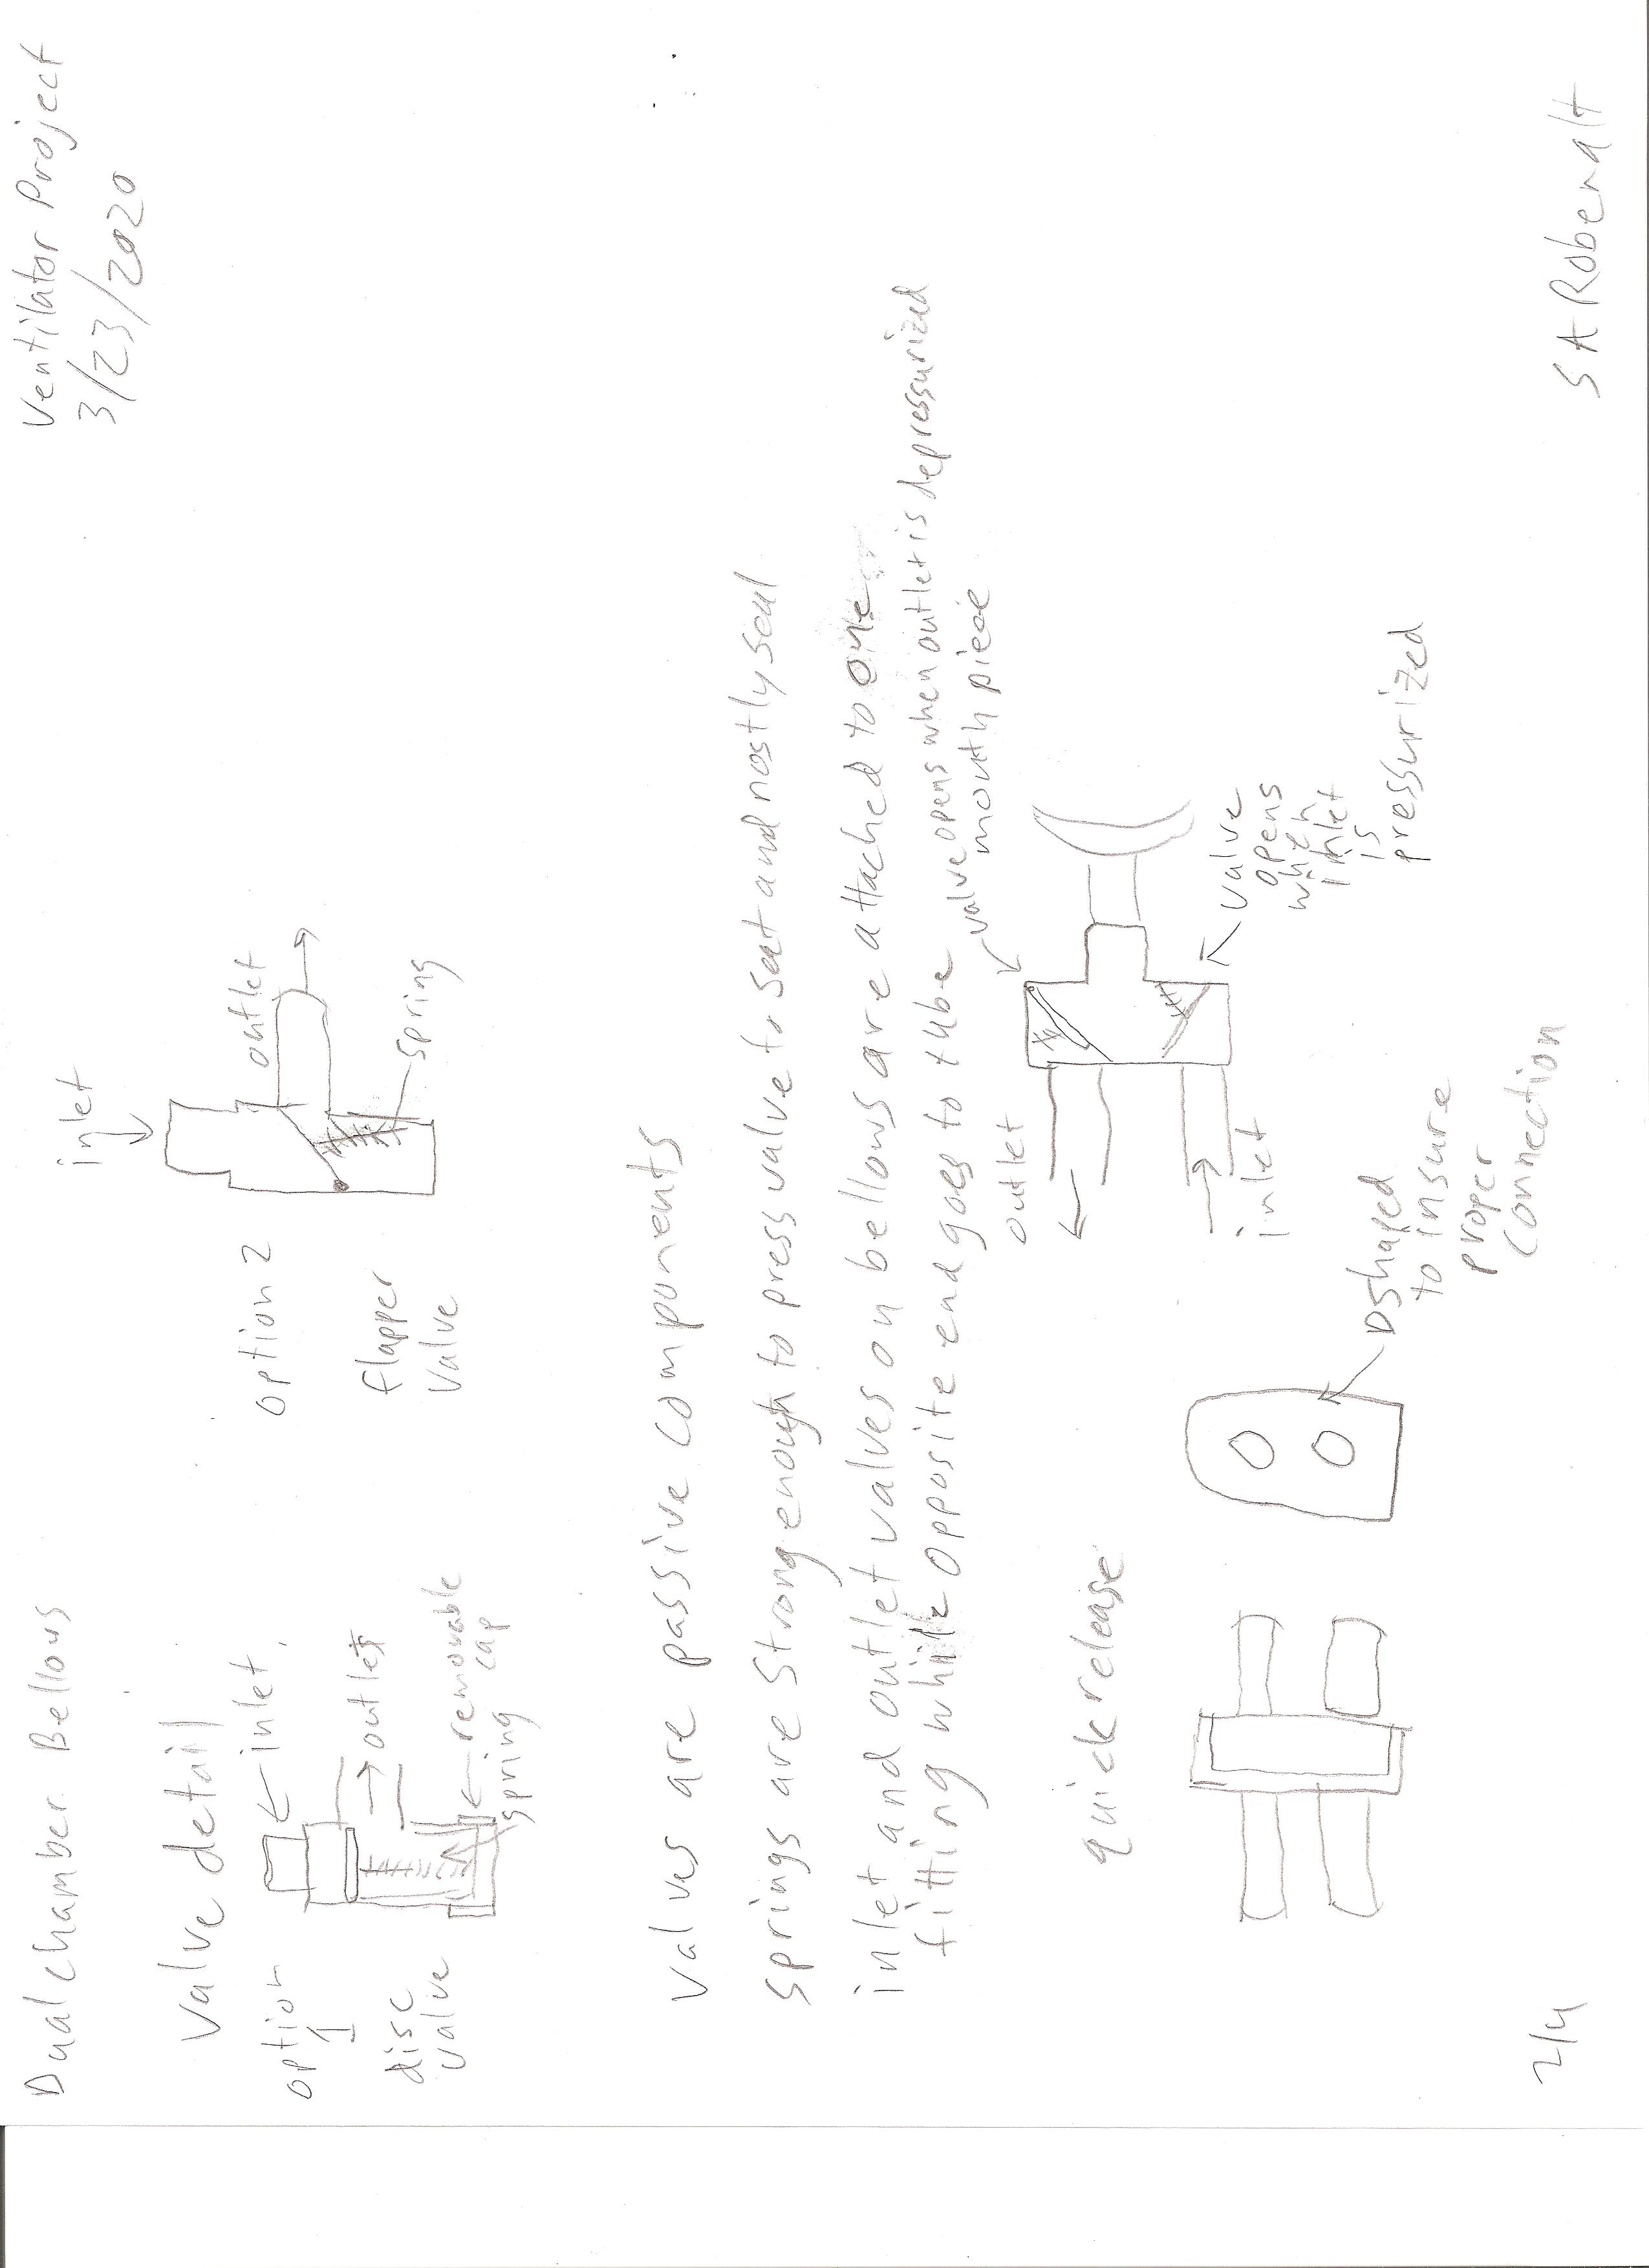 Dual chamber Bellows
Ventilator Project
3/23/2020
Valve detail
option
1
disc
valve
inlet
outlet
removable
cap
spring
option 2
flapper
valve
inlet
outlet
spring
Valves are passive components
Springs are strong enough to press valve to seat and mostly seal
inlet and outlet valves on bellows are attached to one
fitting while opposite end goes to tube
valve opens when outlet is depressurized
mouth piece
quick release
D shaped
to insure
proper
connection
outlet
inlet
valve
opens
when
inlet
is
pressurized
2/4
SA Robenalt